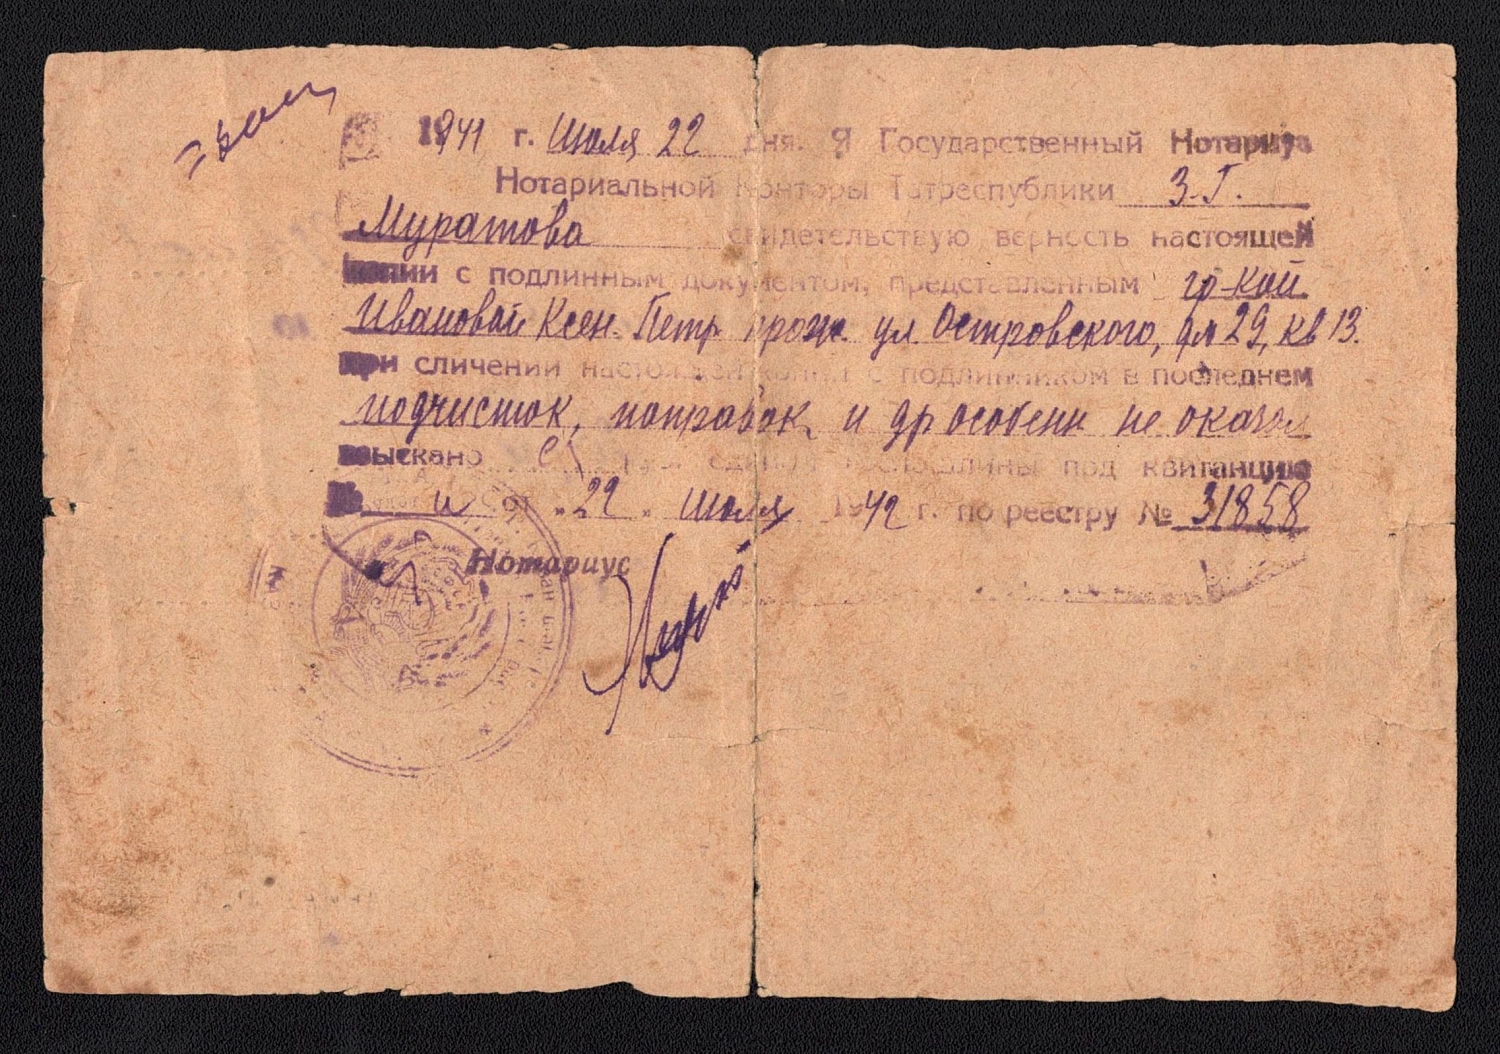 1941 г. Июля 22 дня. Я Государственный Нотариус
Нотариальной Конторы Татреспублики З.Г.
Муратова свидетельствую верность настоящей
копии с подлинным документом, представленным гр-кой
Ивановой Ксен. Петр прож ул. Островского, дм 29, кв 13.
при сличении настоящей копии с подлинником в последнем
подчисток, поправок и др особенн не оказал
взыскано госпошлины под квитанцию
№ от "22" Июля 1942 г. по реестру № 31858
Нотариус